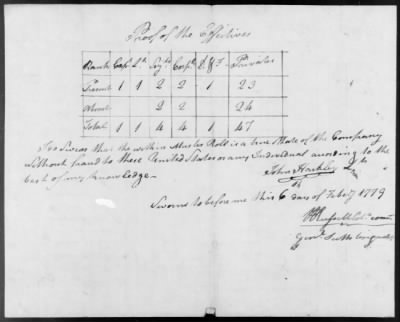 Proof of the Effectives
Rank Capt Lts Sgts Corpl D. & F. Privates
Present 1 1 2 2 1 23
Absent 2 2 24
Total 1 1 4 4 1 47
I do Swear that the within Muster Roll is a true State of the Company
without fraud to these United States or any Individual according to the
best of my knowledge -
John Harkley Lt
Sworn to before me this 6th day of Feby 1779
Colo. com
Genl.